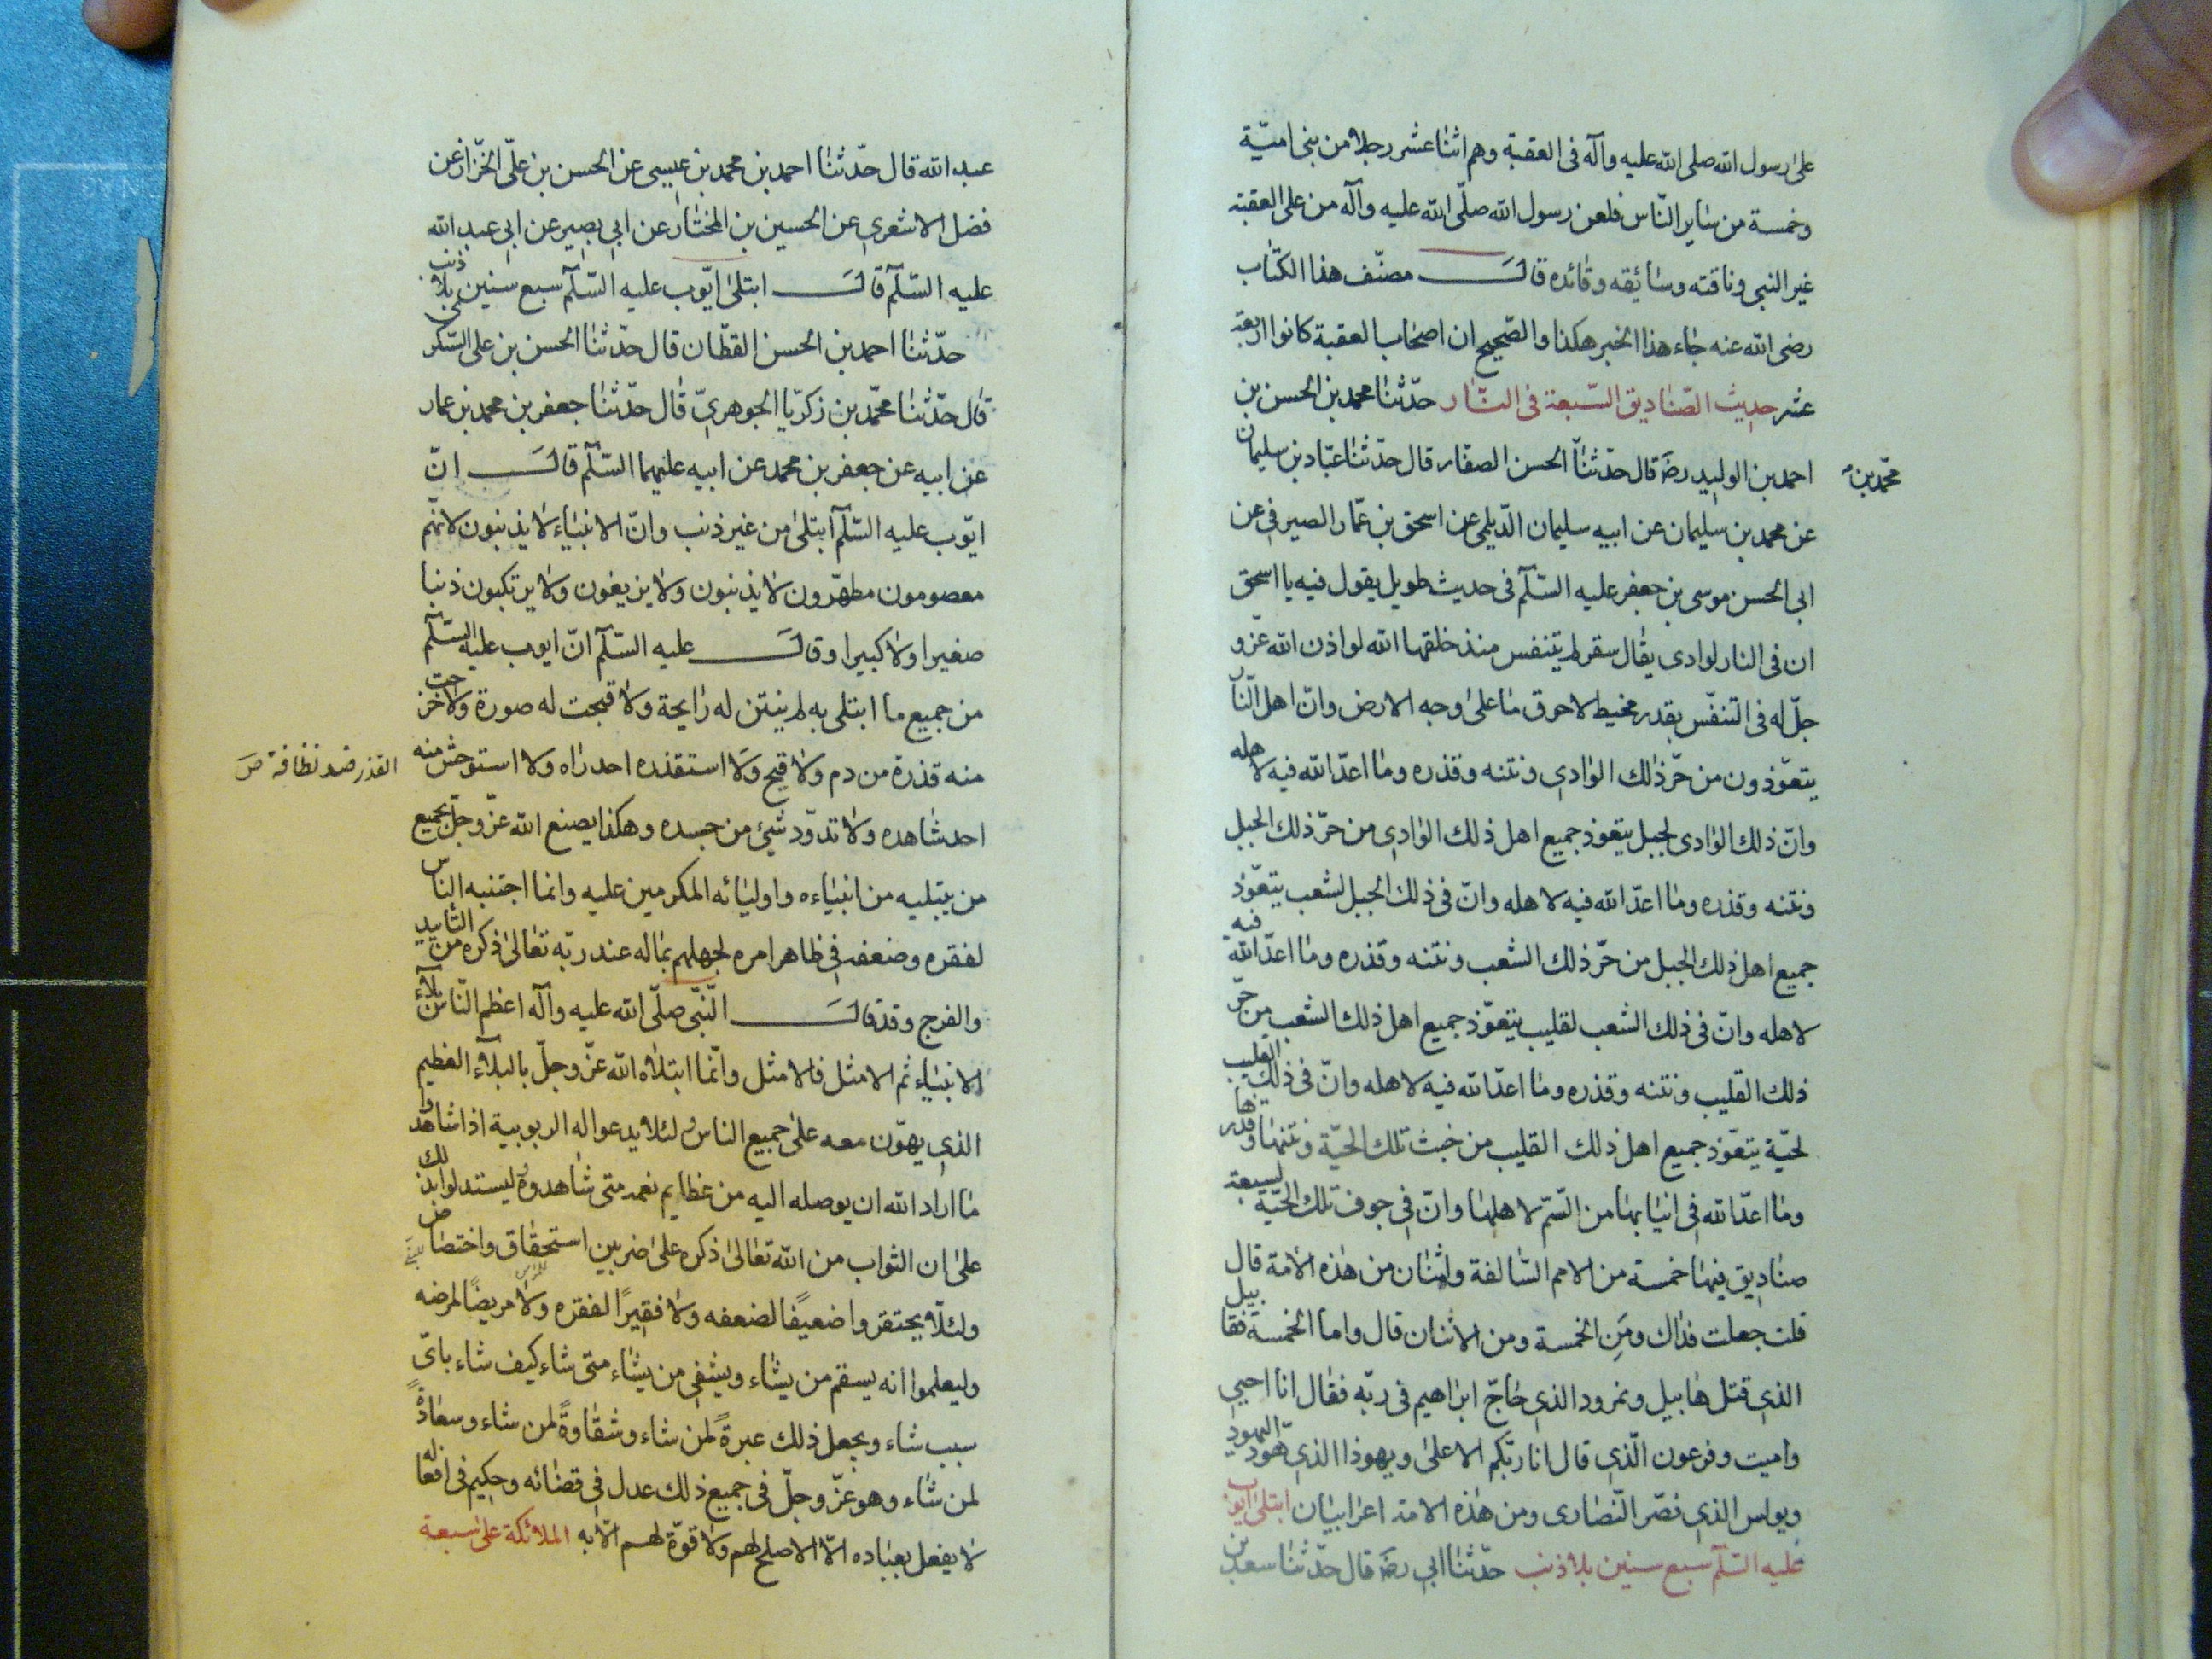 على رسول الله صلى الله عليه وآله فى العقبة وهم اثنا عشر رجلا من بنى اميّة
وخمسة من ساير النّاس فلعن رسول الله صلّى الله عليه وآله من على العقبة
غير النبي وناقته وسائقه وقائده قال مصنّف هذا الكتاب
رضى الله عنه جاء هذا الخبر هكذا والصّحيح ان اصحاب العقبة كانوا اربعة
عشر حديث الصّناديق السّبعة فى النّار حدّثنا محمد بن الحسن بن
احمد بن الوليد رضَ قال حدّثنا الحسن الصفّار قال حدّثنا عبّاد بن سليمان
محمّد بن
عن محمد بن سليمان عن ابيه سليمان الدّيلمى عن اسحق بن عمّار الصيرفى عن
ابى الحسن موسى بن جعفر عليه السّلم فى حديث طويل يقول فيه يا اسحق
ان فى النار لوادى يقال سقر لم يتنفس منذ خلقها الله لو اذن الله عزّ و
جلّ له فى التنفّس بقدر مخيط لاحرق ما على وجه الارض وانّ اهل النّار
يتعوّذون من حرّ ذلك الوادى ونتنه وقذره وما اعدّ الله فيه لاهله
وانّ ذلك الوادى لجبل يتعوذ جميع اهل ذلك الوادى من حرّ ذلك الجبل
ونتنه وقذره وما اعدّ الله فيه لاهله وانّ فى ذلك الجبل لشعب يتعوّذ
جميع اهل ذلك الجبل من حرّ ذلك الشعب ونتنه وقذره وما اعدّ الله فيه
لاهله وانّ فى ذلك الشعب لقليب يتعوّذ جميع اهل ذلك الشعب من حرّ
ذلك القليب ونتنه وقذره وما اعدّ الله فيه لاهله وانّ فى ذلك القليب
لحيّة يتعوّذ جميع اهل ذلك القليب من خبث تلك الحيّة ونتنها وقذرها
وما اعدّ الله فى انيابها من السّمّ لاهلها وانّ فى جوف تلك الحيّة لسبعة
صناديق فيها خمسة من الامم السّالفة واثنان من هذه الامة قال
قلت جعلت فداك ومَنِ الخمسة ومن الاثنان قال واما الخمسة فقابيل
الذى قتل هابيل ونمرود الذى حاجّ ابراهيم فى ربّه فقال انا احيى
واميت وفرعون الّذى قال انا ربّكم الاعلى ويهوذا الذى هوّد اليهود
وبولس الذى نصّر النّصارى ومن هذه الامة اعرابيان ابتلى ايوب
عليه السّلم سبع سنين بلا ذنب حدّثنا ابى رضَ قال حدّثنا سعد بن
عبد الله قال حدّثنا احمد بن محمد بن عيسى عن الحسن بن علىّ الخزّاز عن
فضل الاشعرى عن الحسين بن المختار عن ابى بصير عن ابى عبد الله
عليه السّلم قال ابتلى ايّوب عليه السّلم سبع سنين بلا ذنب
حدّثنا احمد بن الحسن القطّان قال حدّثنا الحسن بن على السّكرى
قال حدّثنا محمّد بن زكريّا الجوهرىّ قال حدّثنا جعفر بن محمد بن عمار
عن ابيه عن جعفر بن محمد عن ابيه عليهما السّلم قال انّ
ايّوب عليه السّلم ابتلى من غير ذنب وانّ الانبياء لا يذنبون لانّهم
معصومون مطهّرون لا يذنبون ولا يزيغون ولا يرتكبون ذنبا
صغيرا ولا كبيرا وقال عليه السّلم انّ ايوب عليه السّلم
من جميع ما ابتلى به لم ينتن له رايحة ولا قبحت له صورة ولا خرجت
منه قذرة من دم ولا قيح ولا استقذره احد راه ولا استوحش منه
القذر ضد نظافة صَ
احد شاهده ولا تدوّد شئ من جسده وهكذا يصنع الله عزّ وجلّ بجميع
من يبتليه من انبياءه واوليائه المكرمين عليه وانما اجتنبه الناس
لفقره وضعفه فى ظاهر امره لجهلهم بما له عند ربّه تعالى ذكره من التأييد
والفرج وقد قال النّبى صلّى الله عليه وآله اعظم النّاس بلاء
الانبياء ثم الامثل فالامثل وانّما ابتلاه الله عزّ وجلّ بالبلآء العظيم
الذى يهوّن معه على جميع الناس لئلا يدعوا له الربوبية اذا شاهدوا
ما اراد الله ان يوصله اليه من عظايم نعمه متى شاهدوه ليستدلوا بذلك
على ان الثواب من الله تعالى ذكره على ضربين استحقاق واختصاص
ولئلّا يحتقروا ضعيفًا لضعفه ولا فقيرًا لفقره ولا مريضًا لمرضه
وليعلموا انه يسقم من يشاء ويشفى من يشاء متى شاء كيف شاء باىّ
سبب شاء ويجعل ذلك عبرةً لمن شاء وشقاوةً لمن شاء وسعادةً
لمن شاء وهو عزّ وجلّ فى جميع ذلك عدل فى قضائه وحكيم فى افعاله
لا يفعل بعباده الّا الاصلح لهم ولا قوّة لهم الّا به الملائكة على سبعة